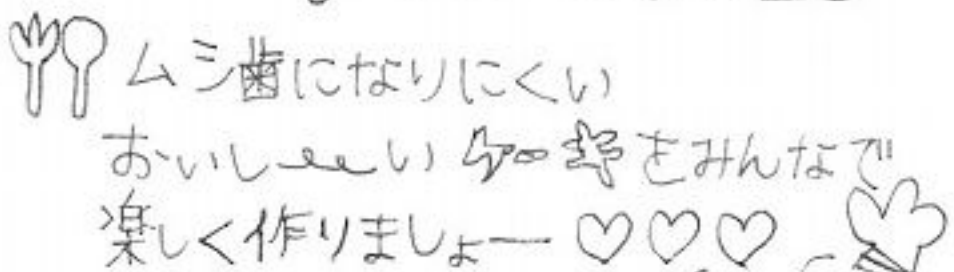 ムシ歯になりにくい
おいしーい ケーキをみんなで
楽しく作りましょー ♡♡♡